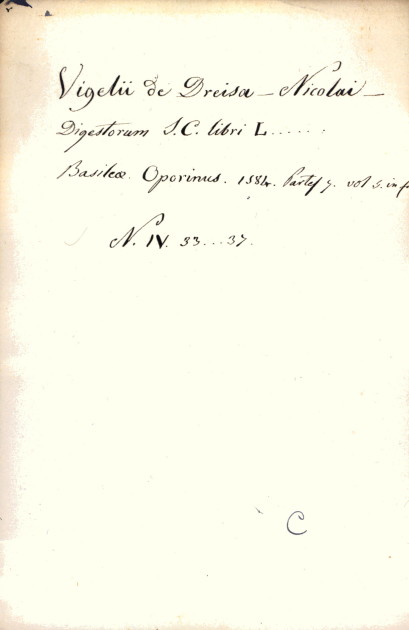 Vigelii de Dreisa – Nicolai –
Digestorum I.C. libri L......
Basileæ Oporinus. 1584. Partes 7. vol 5. in f
N. IV. 33...37.
C